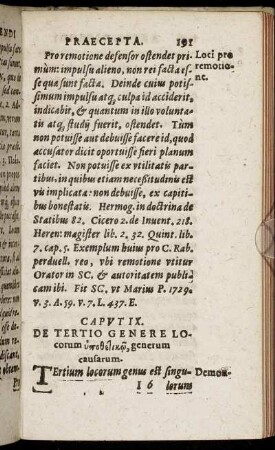 PRAECEPTA. 191
Pro remotione defensor ostendet pri
mum: impulsu alieno, non rei facta es-
se quæ sunt facta. Deinde cuius potis-
simum impulsu atq, culpa id acciderit,
indicabit, & quantum in illo volunta-
tis atq, studij fuerit, ostendet. Tum
non potuisse aut debuisse facere id, quod
accusator dicit oportuisse fieri planum
faciet. Non potuisse ex vtilitatis par-
tibus, in quibus etiam necessitudinis est
vis implicata: non debuisse, ex capiti-
bus honestatis. Hermog. in doctrina de
Statibus 82. Cicero 2. de Inuent. 218.
Heren: magister lib. 2. 32. Quint. lib.
7. cap. 5. Exemplum huius pro C. Rab.
perduell. reo, vbi remotione vtitur
Orator in SC. & autoritatem publi-
cam ibi. Fit SC. vt Marius P. 1729.
v. 3. A. 59. v. 7. L. 437. E.
Loci pro
remotio-
ne.
CAPVT IX.
DE TERTIO GENERE LO-
corum ὑποθετικῶν, generum
causarum.
Tertium locorum genus est singu-
Demon-
I 6 lorum